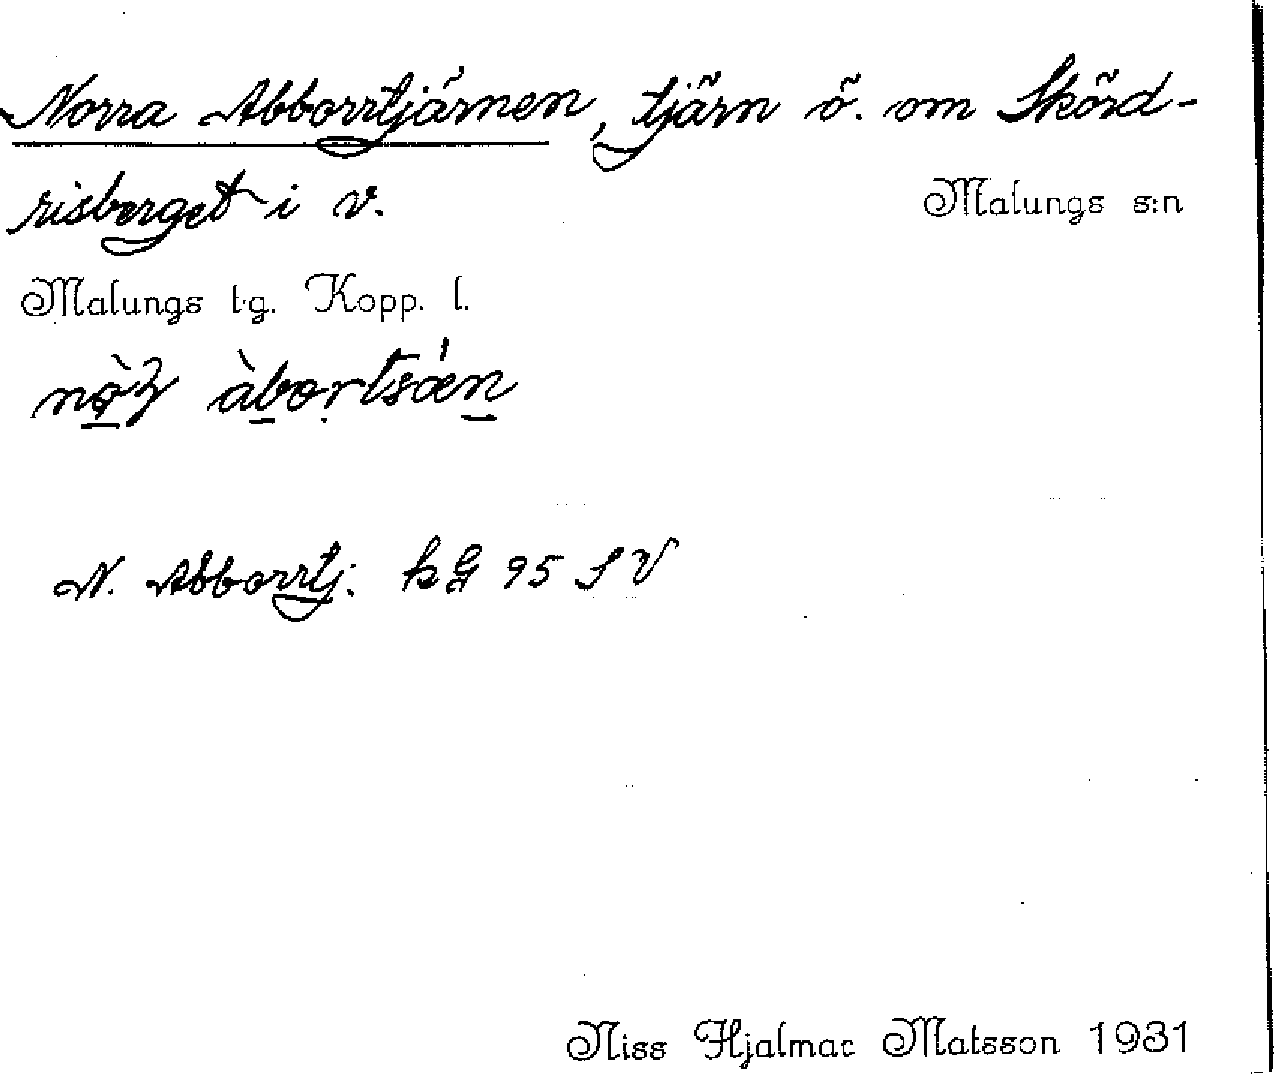 Norra Abborrtjärnen, tjärn ö. om Skörd-
risberget i v. Malungs s:n
Malungs tg. Kopp. l.
N. Abborrtj. kG 95 SV
Niss Hjalmar Matsson 1931